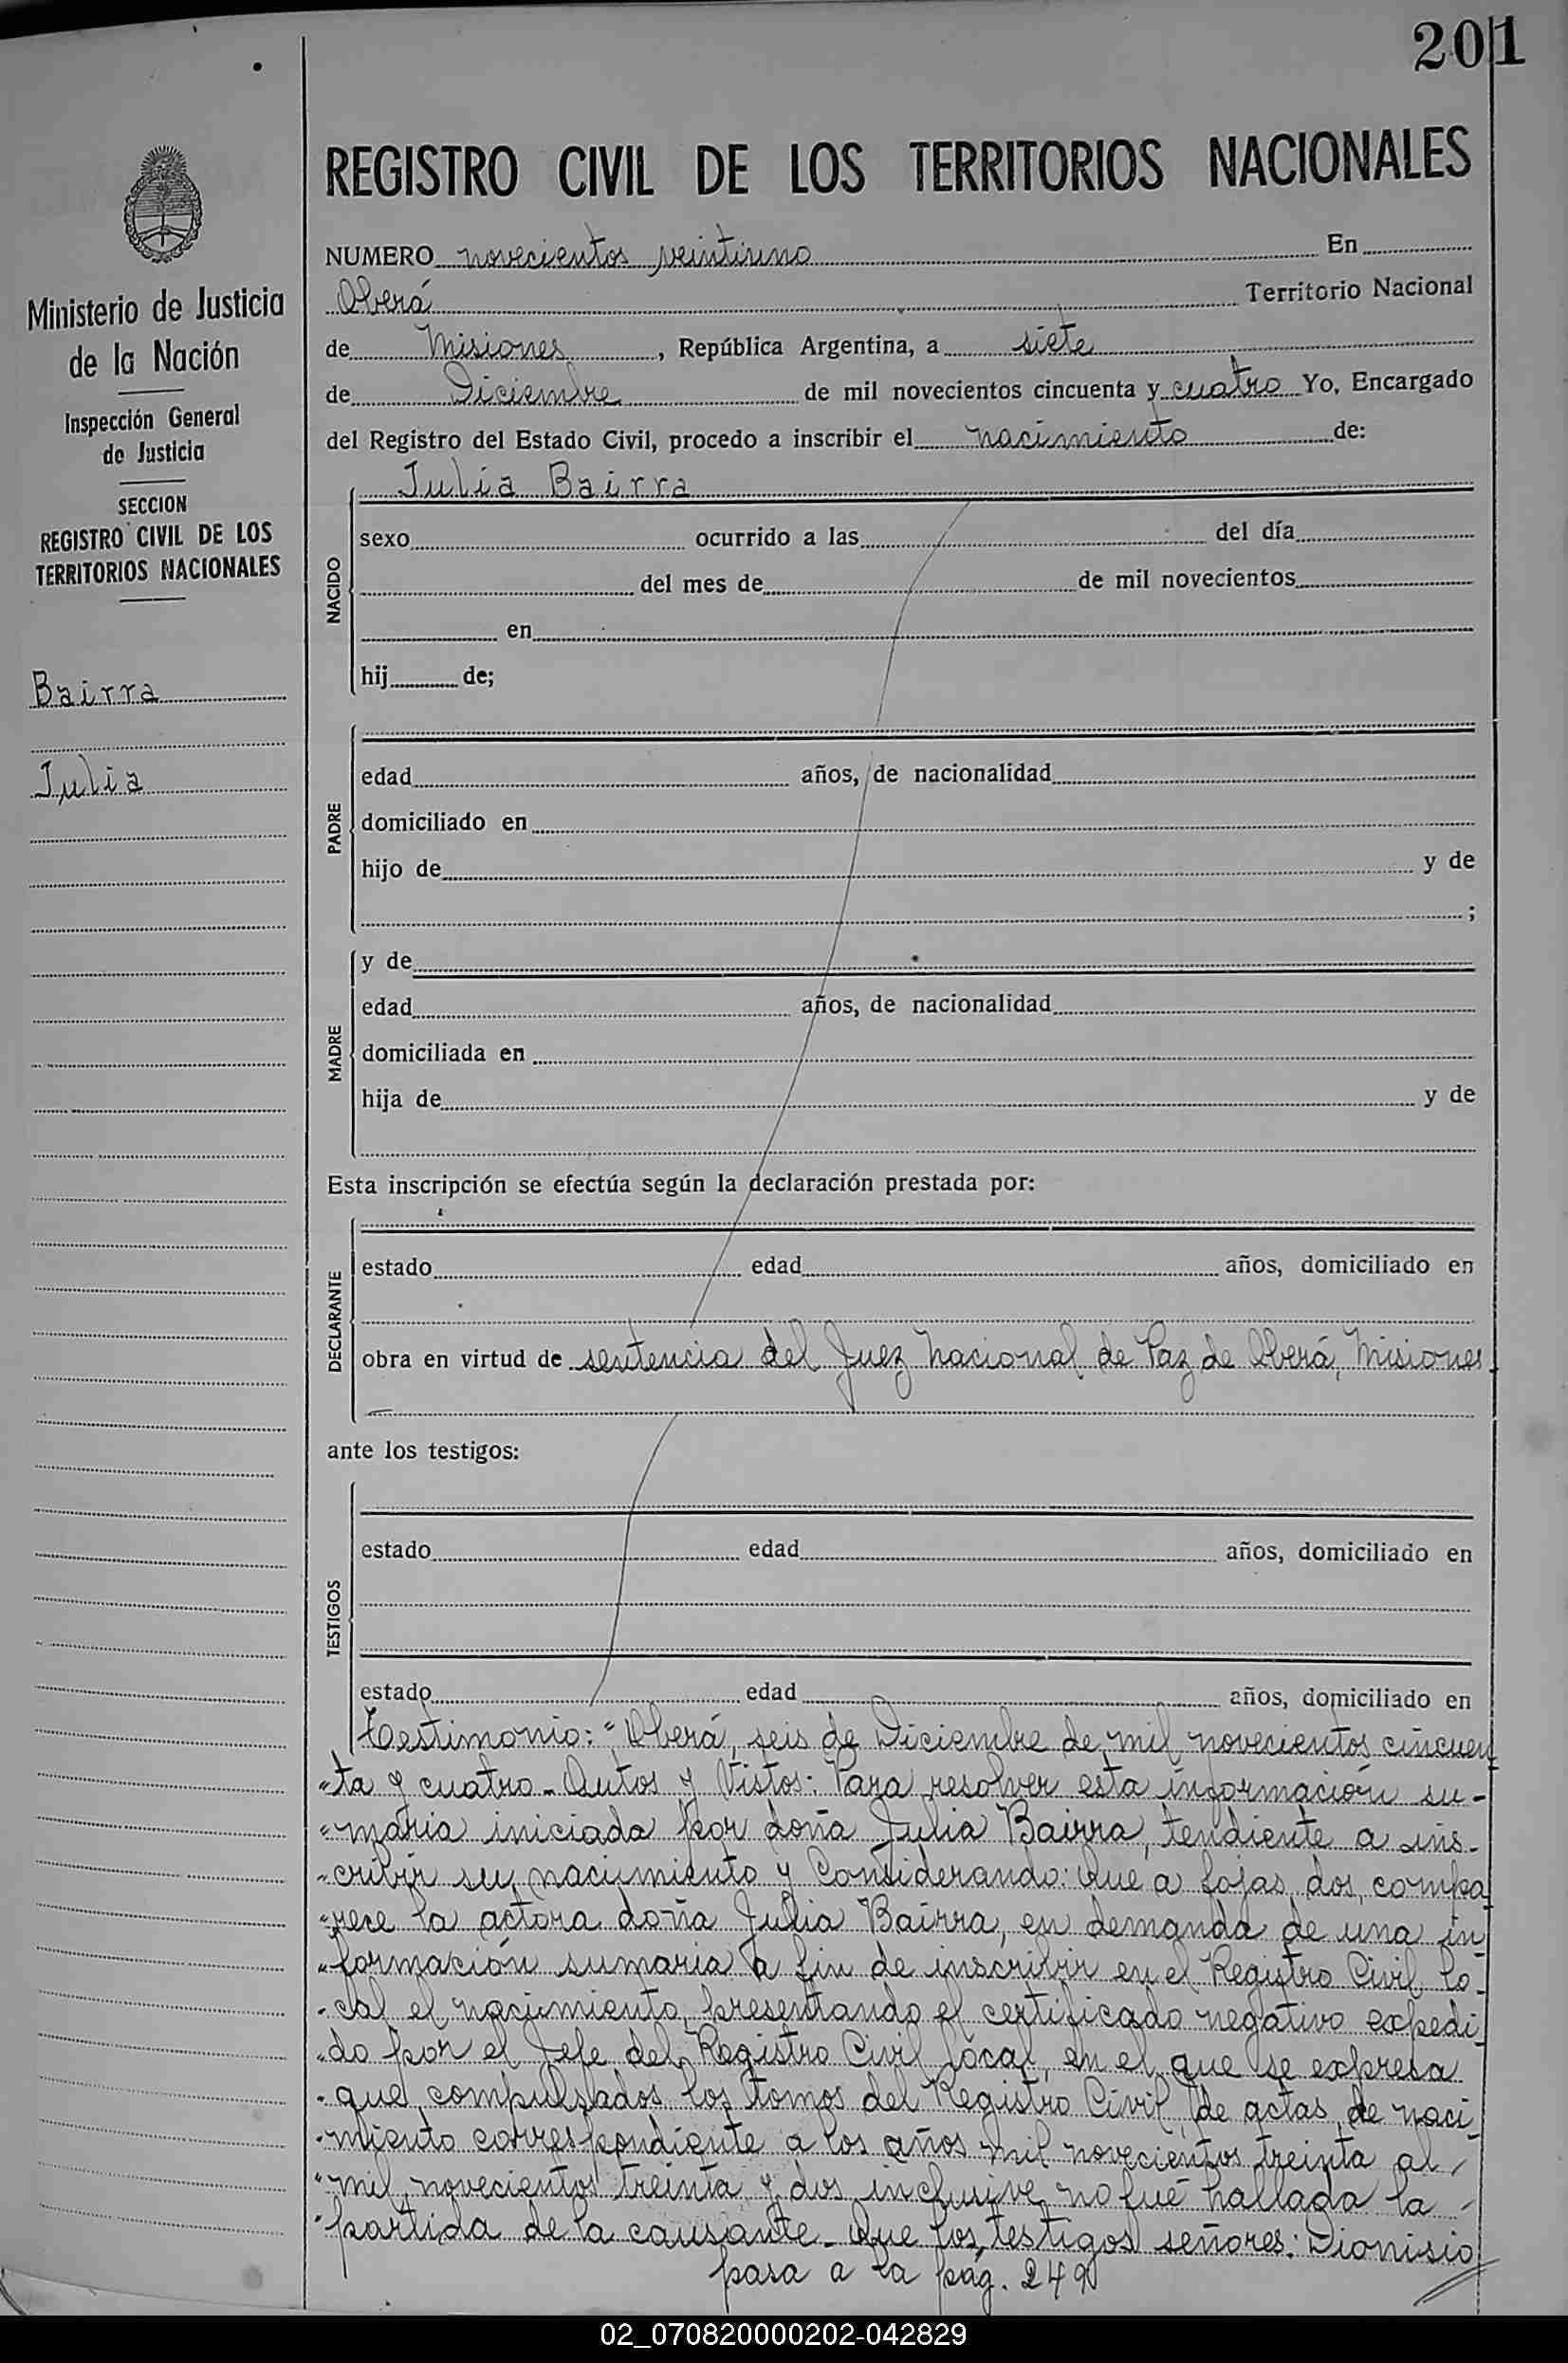 201
REGISTRO CIVIL DE LOS TERRITORIOS NACIONALES
Ministerio de Justicia
de la Nación
Inspección General
de Justicia
SECCION
REGISTRO CIVIL DE LOS
TERRITORIOS NACIONALES
Bairra
Julia
NUMERO novecientos veintiuno En
Oberá Territorio Nacional
de Misiones, República Argentina, a siete
de Diciembre de mil novecientos cincuenta y cuatro Yo, Encargado
del Registro del Estado Civil, procedo a inscribir el nacimiento de:
Julia Bairra
NACIDO
sexo ocurrido a las del día
del mes de de mil novecientos
en
hij de;
PADRE
edad años, de nacionalidad
domiciliado en
hijo de y de
;
MADRE
y de
edad años, de nacionalidad
domiciliada en
hija de y de
Esta inscripción se efectúa según la declaración prestada por:
DECLARANTE
estado edad años, domiciliado en
obra en virtud de sentencia del Juez Nacional de Paz de Oberá, Misiones
ante los testigos:
TESTIGOS
estado edad años, domiciliado en
estado edad años, domiciliado en
Testimonio: "Oberá, seis de Diciembre de mil novecientos cincuen
"ta y cuatro - Autos y Vistos: Para resolver esta información su-
"maria iniciada por doña Julia Bairra, tendiente a ins-
"cribir su nacimiento y Considerando: Que a fojas dos, compa
"rece la actora doña Julia Bairra, en demanda de una in
"formación sumaria a fin de inscribir en el Registro Civil lo-
"cal el nacimiento, presentando el certificado negativo expedi
"do por el Jefe del Registro Civil local, en el que se expresa
"que compulsados los tomos del Registro Civil, de actas de naci
"miento correspondiente a los años mil novecientos treinta al
"mil novecientos treinta y dos inclusive no fué hallada la
"partida de la causante - Que los testigos señores: Dionisio
pasa a la pág. 249
02_070820000202-042829